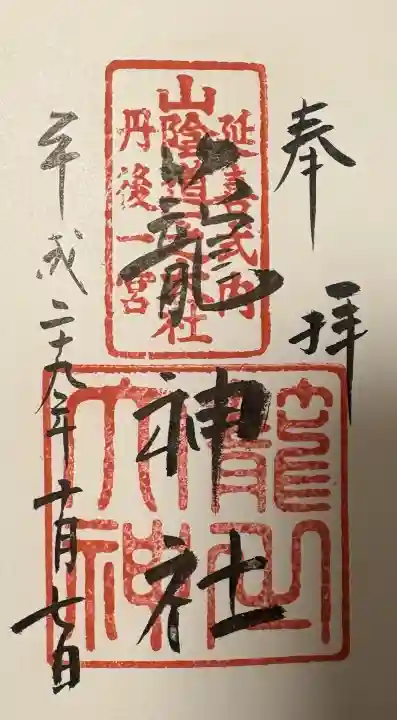 奉拝
延喜式内
山陰道一之大社
丹後一宮
籠神社
籠之
大神
平成二十九年十月七日